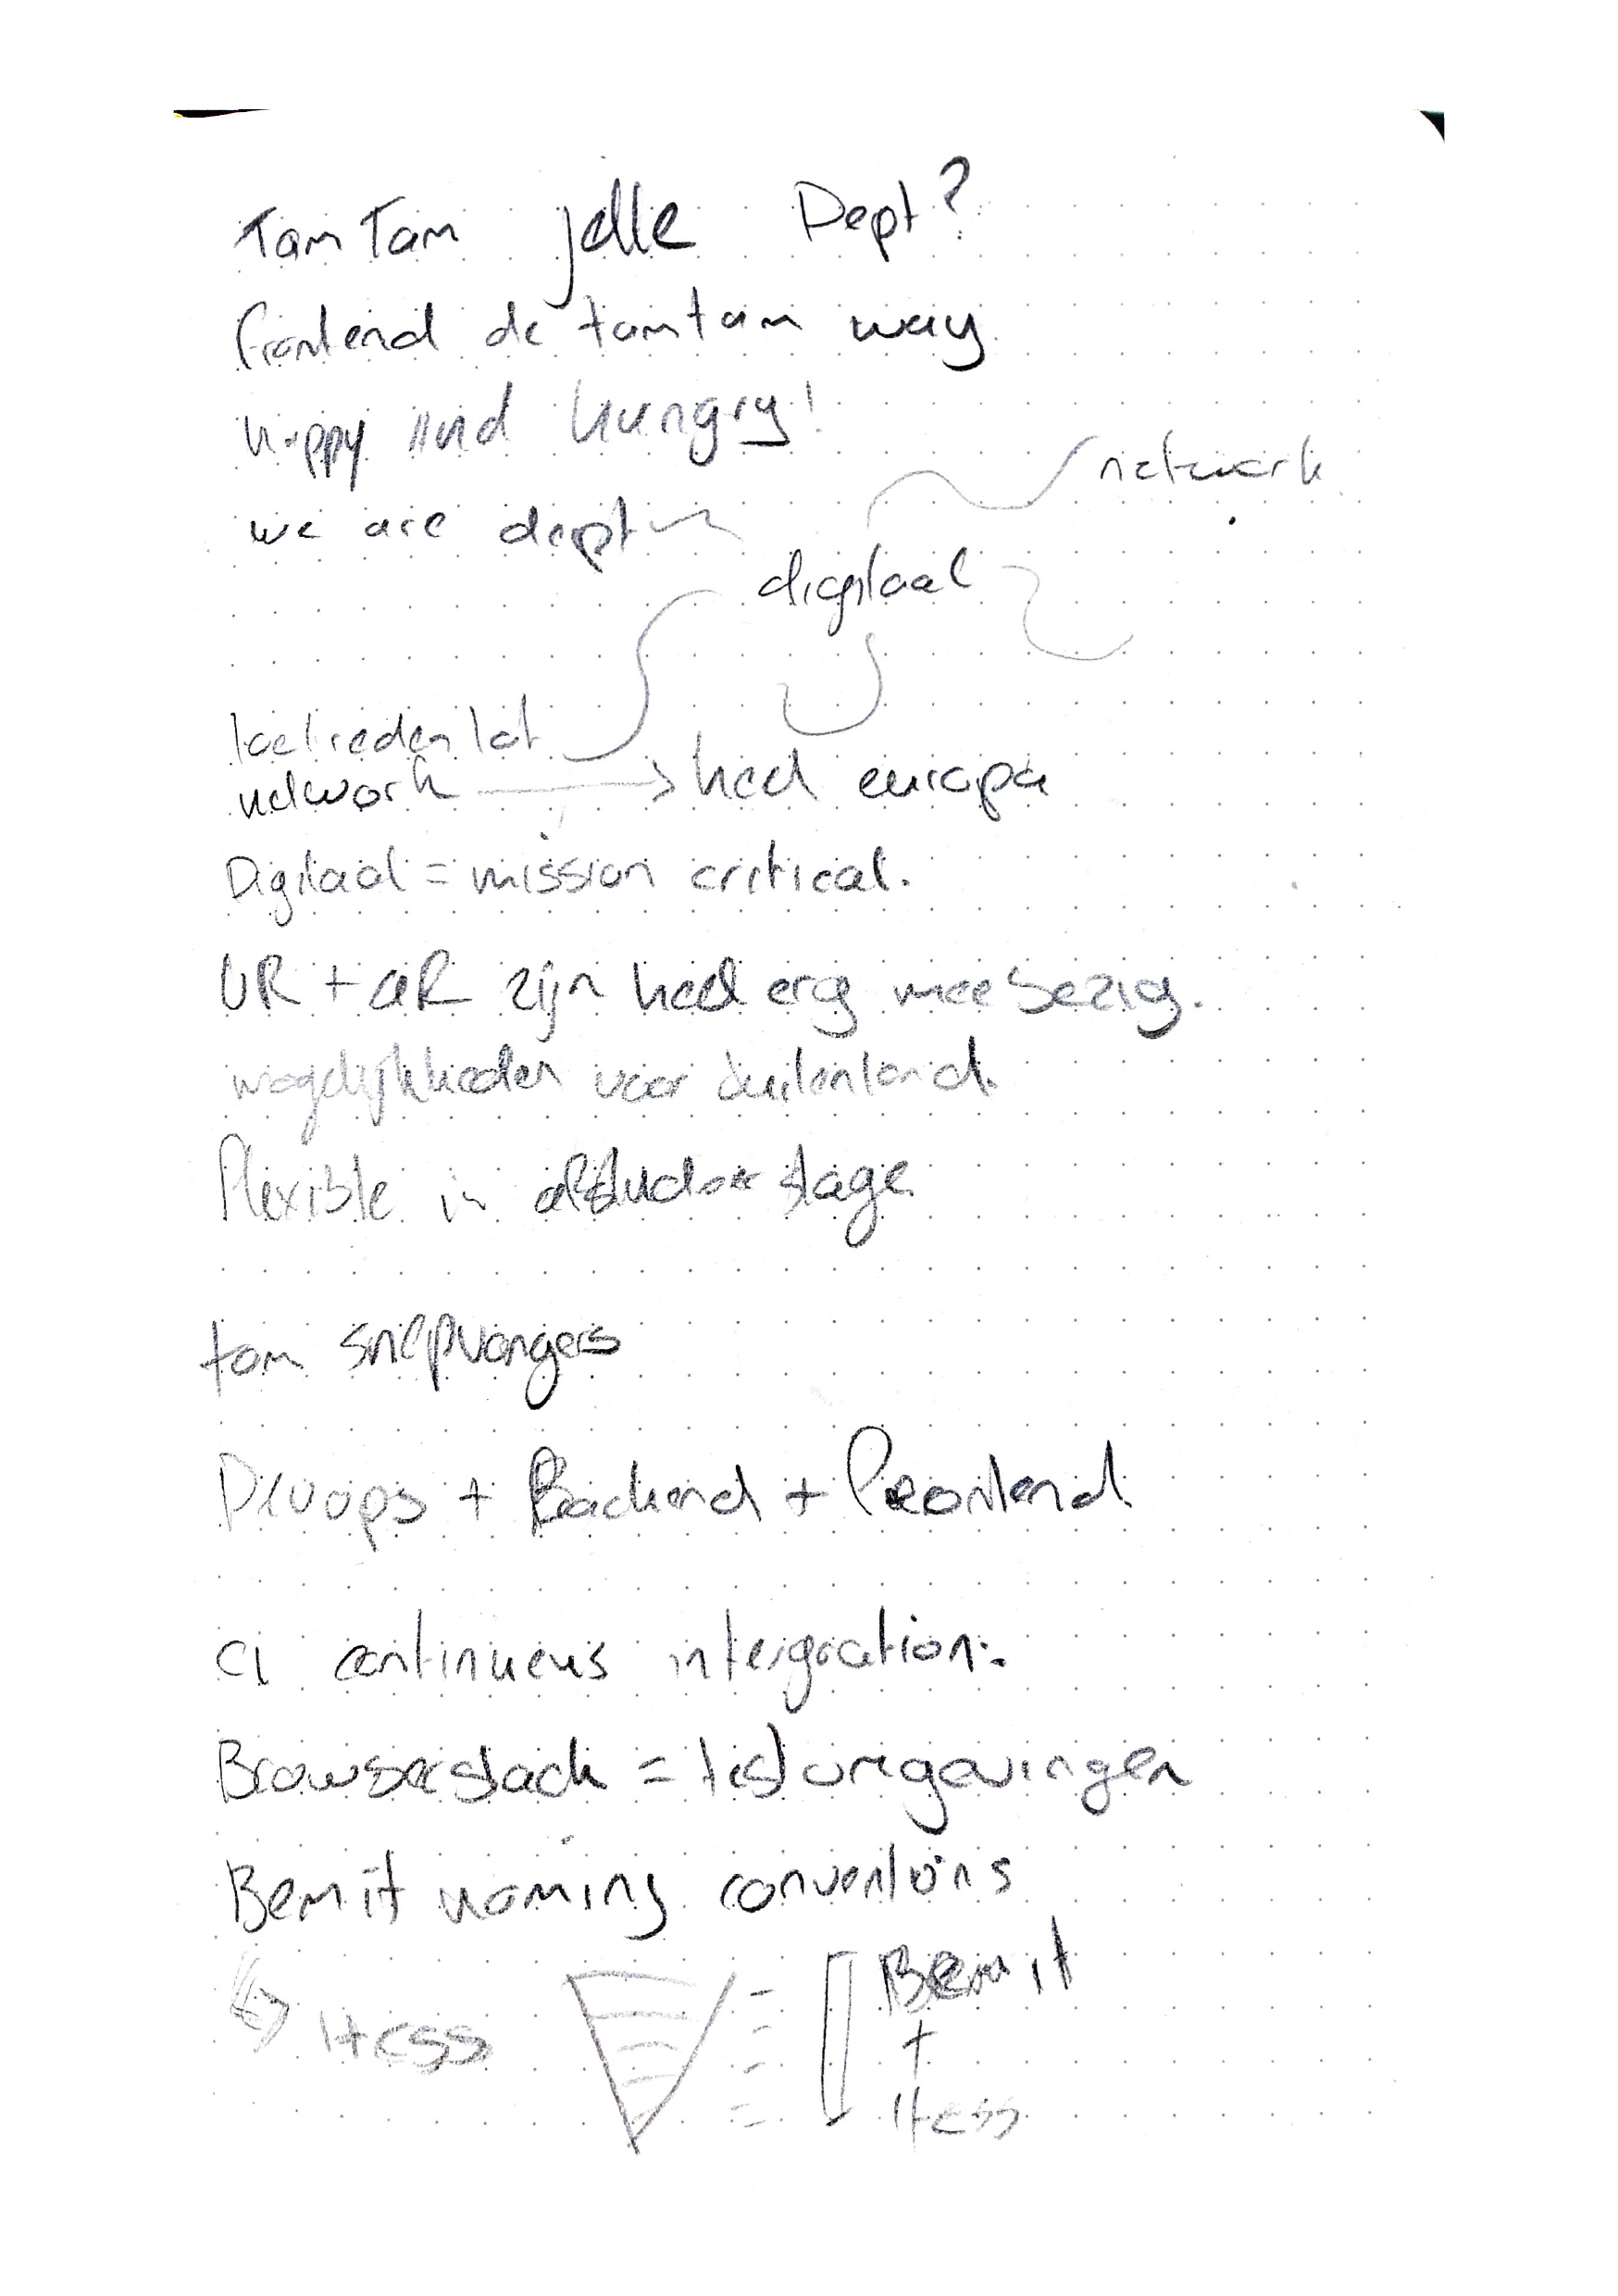 TamTam jelle Dept?
frontend de tamtam way
happy and hungry!
network
we are dept
digitaal
toetreden tot
network → heel europa
Digitaal = mission critical.
VR + aR zijn heel erg mee bezig.
mogelijkheden voor buitenland.
flexible in afstudeer stage
tom snepvangers
Devops + Backend + Freontend
CI continueus intergration:.
Browserstack = test omgevingen
Bem it naming conventions
Itcss
Bem it
+
Itcss